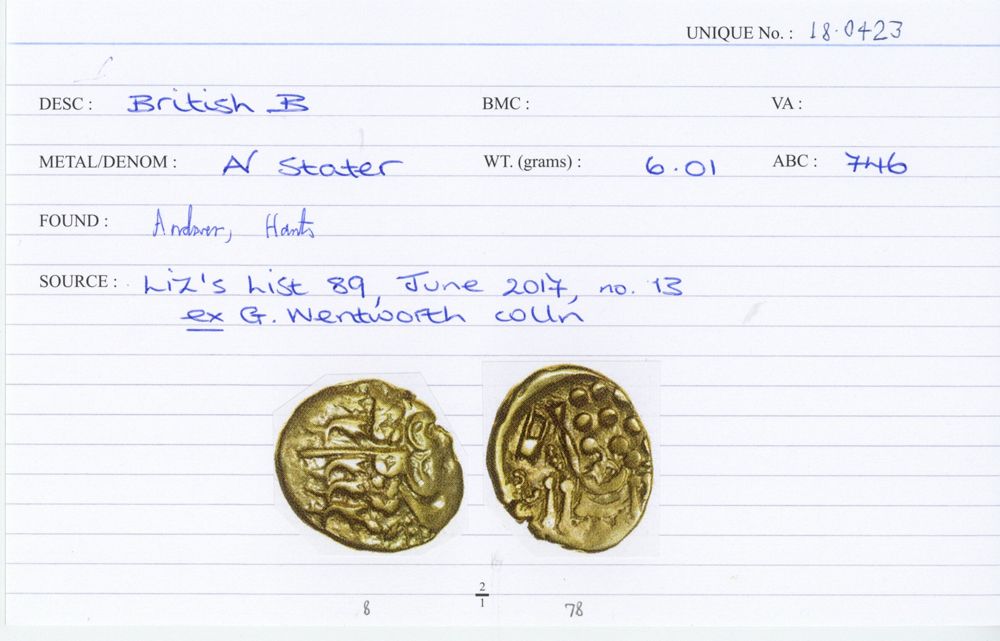 UNIQUE No. : 18.0423
DESC : British B BMC : VA :
METAL/DENOM : N Stater WT. (grams) : 6.01 ABC : 746
FOUND : Andover, Hants
SOURCE : Liz's List 89, June 2017, no. 13
ex G. Wentworth colln
2
1
8 78